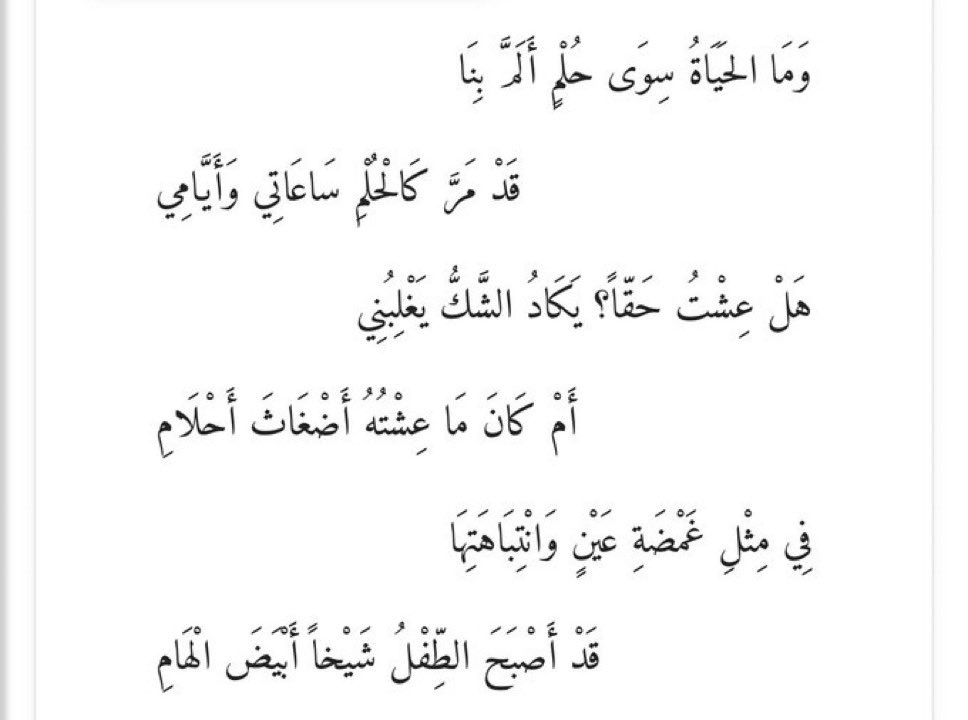 وَمَا الحَيَاةُ سِوَى حُلْمٍ أَلَمَّ بِنَا
قَدْ مَرَّ كَالْحُلْمِ سَاعَاتِي وَأَيَّامِي
هَلْ عِشْتُ حَقّاً؟ يَكَادُ الشَّكُّ يَغْلِبُنِي
أَمْ كَانَ مَا عِشْتُهُ أَضْغَاثَ أَحْلَامِ
فِي مِثْلِ غَمْضَةِ عَيْنٍ وَانْتِبَاهَتِهَا
قَدْ أَصْبَحَ الطِّفْلُ شَيْخاً أَبْيَضَ الْهَامِ